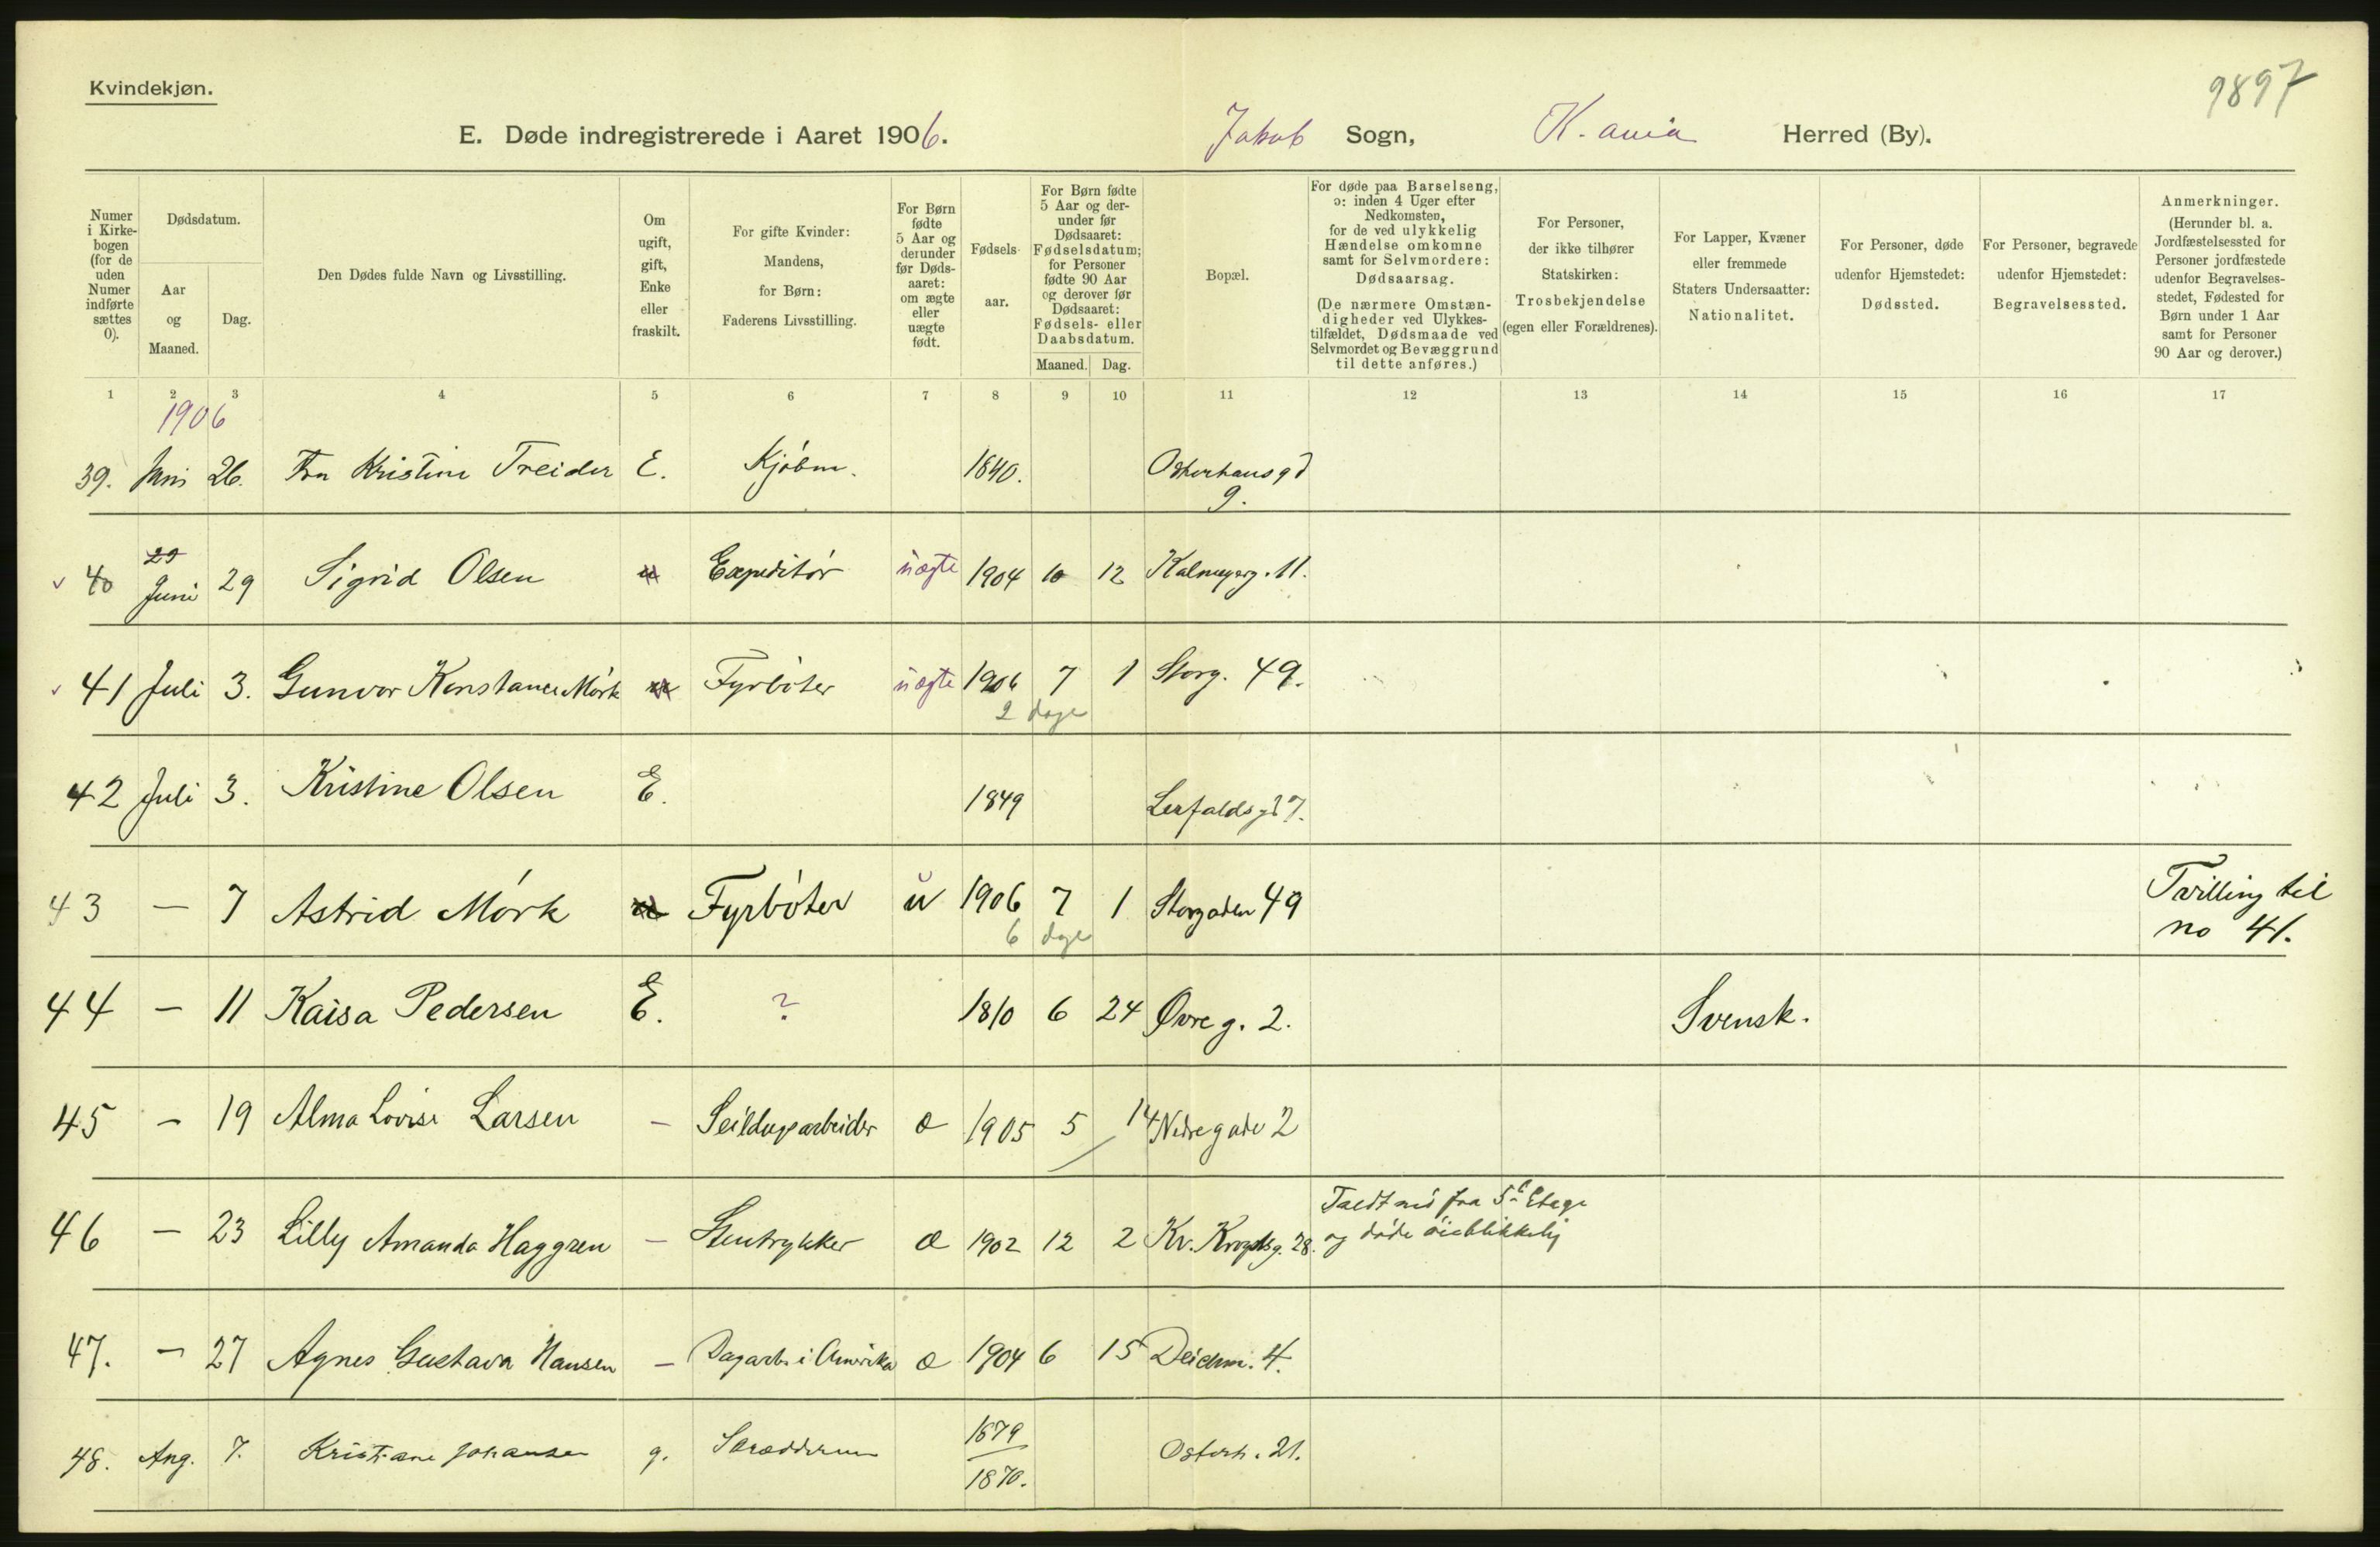 Kvindekjøn.
9897
E. Døde indregistrerede i Aaret 1906.
Jakob Sogn, K.ania Herred (By).
Numer i Kirkebogen (for de uden Numer indførte sættes 0).
Dødsdatum.
Aar og Maaned.
Dag.
Den Dødes fulde Navn og Livsstilling.
Om ugift, gift, Enke eller fraskilt.
For gifte Kvinder: Mandens, for Børn: Faderens Livsstilling.
For Børn fødte 5 Aar og derunder før Dødsaaret: om ægte eller uægte født.
Fødselsaar.
For Børn fødte 5 Aar og derunder før Dødsaaret: Fødselsdatum; for Personer fødte 90 Aar og derover før Dødsaaret: Fødsels- eller Daabsdatum.
Maaned. Dag.
Bopæl.
For døde paa Barselseng, ɔ: inden 4 Uger efter Nedkomsten, for de ved ulykkelig Hændelse omkomne samt for Selvmordere: Dødsaarsag.
(De nærmere Omstændigheder ved Ulykkestilfældet, Dødsmaade ved Selvmordet og Bevæggrund til dette anføres.)
For Personer, der ikke tilhører Statskirken: Trosbekjendelse (egen eller Forældrenes).
For Lapper, Kvæner eller fremmede Staters Undersaatter: Nationalitet.
For Personer, døde udenfor Hjemstedet: Dødssted.
For Personer, begravede udenfor Hjemstedet: Begravelsessted.
Anmerkninger.
(Herunder bl. a. Jordfæstelsessted for Personer jordfæstede udenfor Begravelsesstedet, Fødested for Børn under 1 Aar samt for Personer 90 Aar og derover.)
1 2 3 4 5 6 7 8 9 10 11 12 13 14 15 16 17
1906
39. Juni 26. Fru Kristine Treider E. Kjøbm. 1840. Osterhausgd 9.
29
40 Juni 29 Sigrid Olsen u Expeditør uægte 1904 10 12 Kalmeyerg. 11.
41 Juli 3. Gunvor Konstance Mørk Fyrbøter uægte 1906 7 1 Storg. 49.
2 dage
42 Juli 3. Kristine Olsen E. 1849 Lerfaldsgd 7.
43 — 7 Astrid Mørk Fyrbøter u 1906 7 1 Storgaden 49 Tvilling til
6 dage no 41.
44 — 11 Kaisa Pedersen E. ? 1810 6 24 Øvreg. 2. Svensk.
45 — 19 Alma Lovise Larsen — Seildugsarbeider æ 1905 5 14 Nedregade 2
46 — 23 Lilly Amanda Haggren — Stentrykker æ 1902 12 2 Kv. Krogdsg. 28. Faldt ned fra 5te Etage
og døde øieblikkelig
47. — 27 Agnes Gustava Hansen — Dagarb. i Amerika æ 1904 6 15 Deichm. 4.
48. Aug. 7. Kristiane Johansen g. 1879 Osterh. 21.
1870.